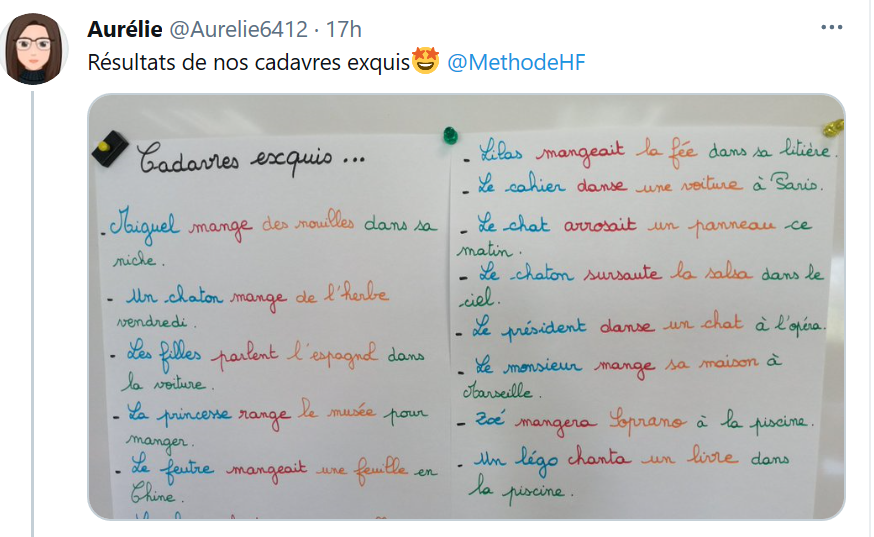 Aurélie @Aurelie6412 · 17h
Résultats de nos cadavres exquis🤩 @MethodeHF
Cadavres exquis ...
- Miguel mange des nouilles dans sa
niche.
- Un chaton mange de l'herbe
vendredi.
- Les filles parlent l'espagnol dans
la voiture.
- La princesse range le musée pour
manger.
- Le feutre mangeait une feuille en
Chine.
- Lilas mangeait la fée dans sa litière.
- Le cahier danse une voiture à Paris.
- Le chat arrosait un panneau ce
matin.
- Le chaton sursaute la salsa dans le
ciel.
- Le président danse un chat à l'opéra.
- Le monsieur mange sa maison à
Marseille.
- Zoé mangera Soprano à la piscine.
- Un légo chanta un livre dans
la piscine.